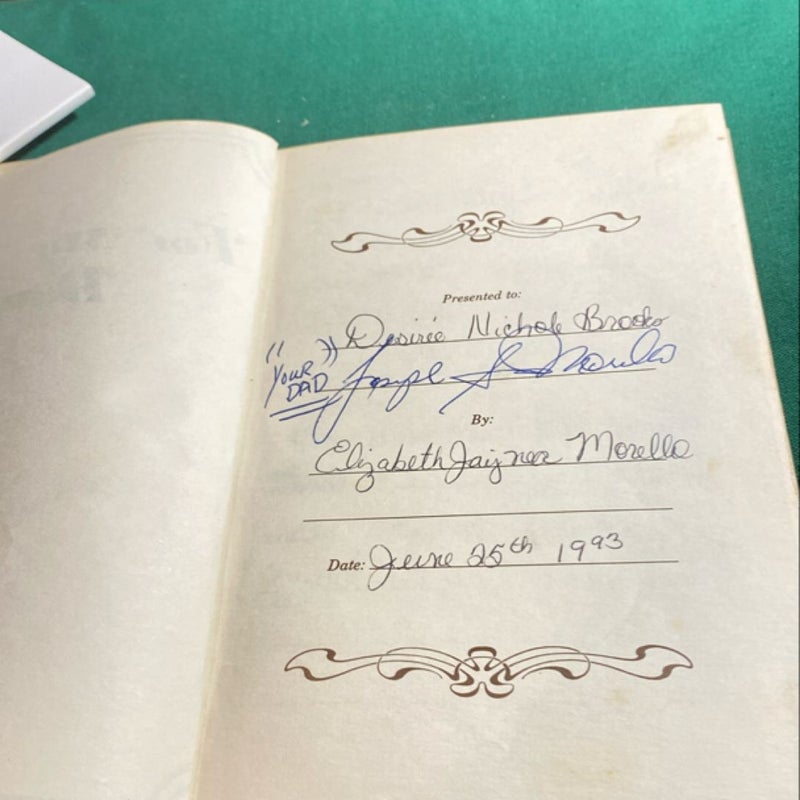 Presented to:
Desireé Nichole Brooks
"YOUR DAD" Joseph S Morello
By:
Elizabeth Morello
Date: June 25th 1993